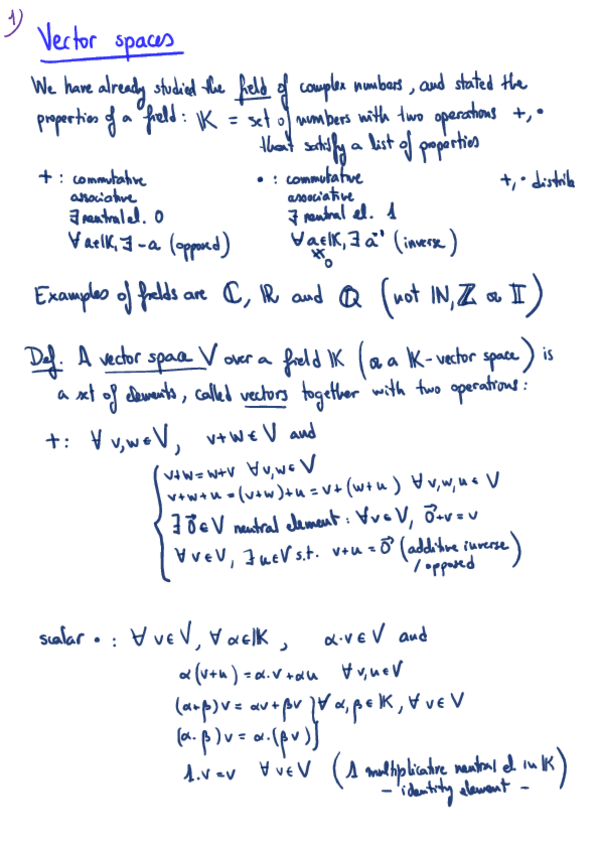 1)
Vector spaces
We have already studied the field of complex numbers, and stated the
properties of a field: 𝕂 = set of numbers with two operations +, ·
that satisfy a list of properties
+ : commutative · : commutative +, · distrib
associative associative
∃ neutral el. 0 ∃ neutral el. 1
∀a∈𝕂, ∃ -a (opposed) ∀a∈𝕂, ∃ a⁻¹ (inverse)
≠0
Examples of fields are ℂ, ℝ and ℚ (not ℕ, ℤ or 𝕀)
Def. A vector space V over a field 𝕂 (or a 𝕂-vector space) is
a set of elements, called vectors together with two operations:
+: ∀ v,w∈V, v+w∈V and
v+w=w+v ∀v,w∈V
v+w+u=(v+w)+u=v+(w+u) ∀v,w,u∈V
∃ 0⃗∈V neutral element: ∀v∈V, 0⃗+v=v
∀v∈V, ∃u∈V s.t. v+u=0⃗ (additive inverse
/opposed)
scalar · : ∀v∈V, ∀α∈𝕂, α·v∈V and
α(v+u)=α·v+αu ∀v,u∈V
(α+β)v=αv+βv } ∀α,β∈𝕂, ∀v∈V
(α·β)v=α·(βv)
1·v=v ∀v∈V (1 multiplicative neutral el in 𝕂)
- identity element -